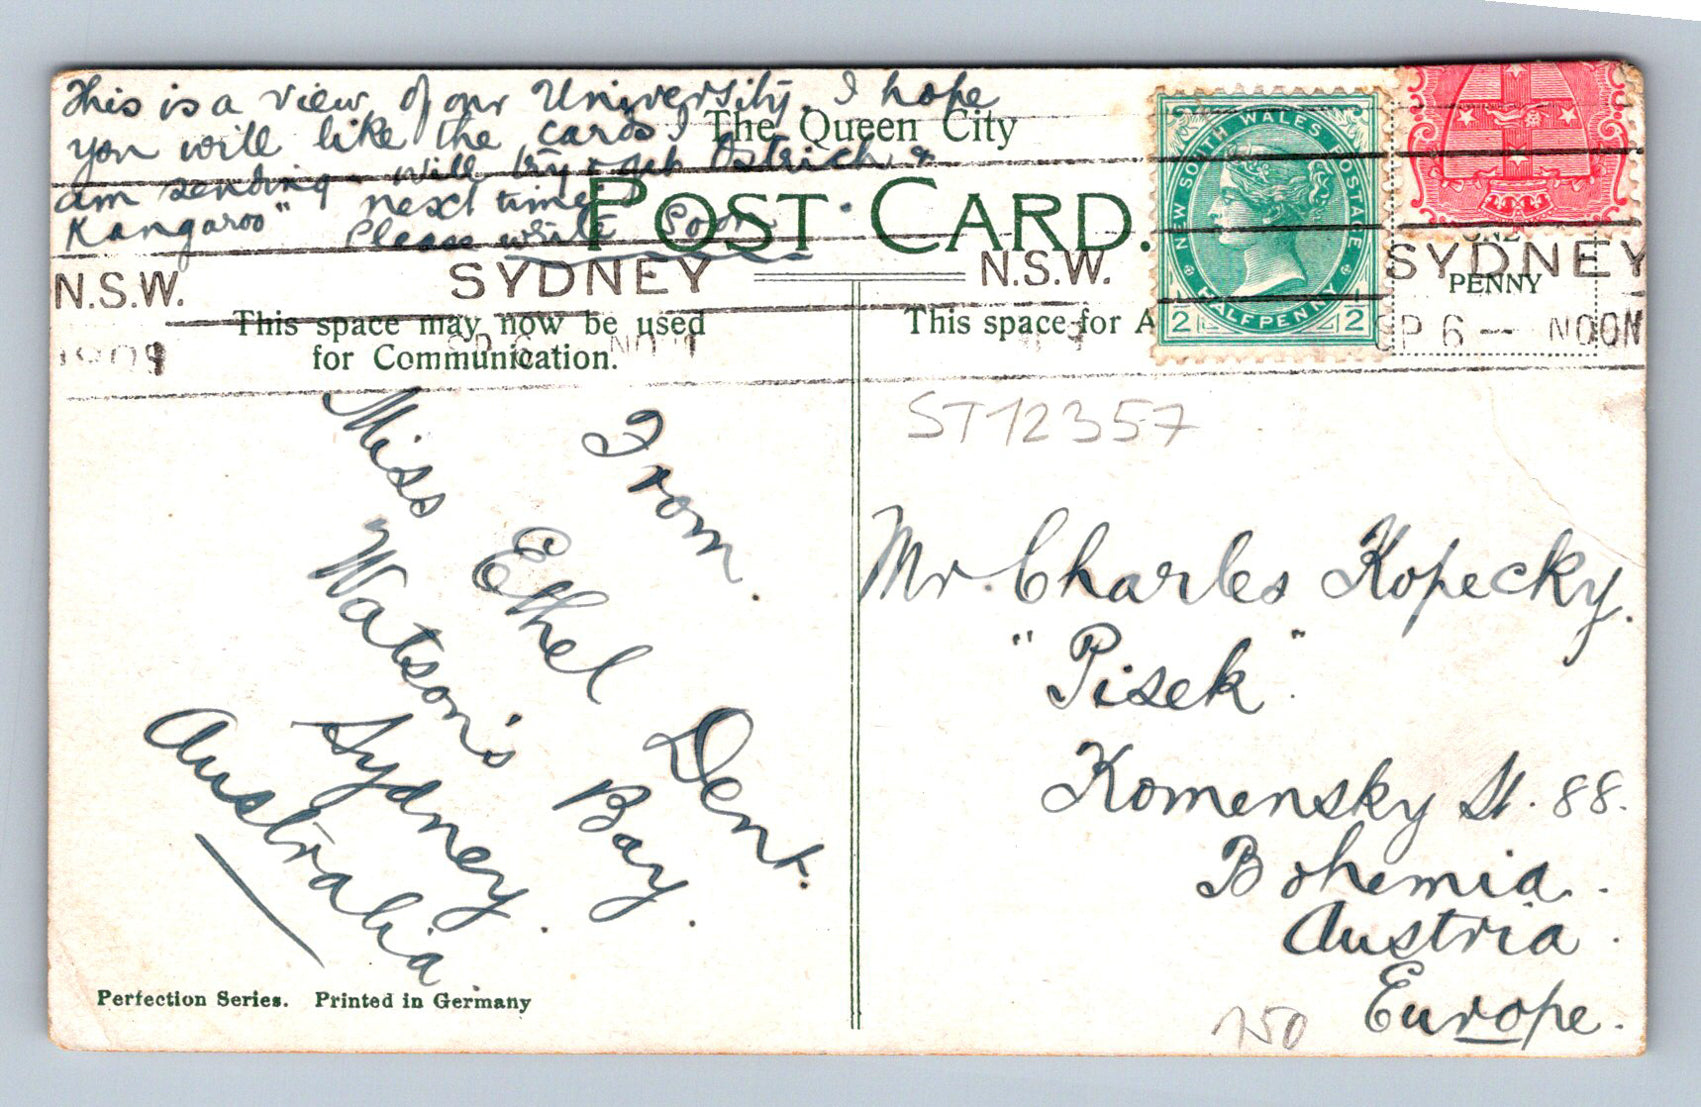 This is a view of our University. I hope
you will like the cards I
am sending - will try & get Ostrich &
Kangaroo" next time
Please write soon
The Queen City
POST CARD.
NEW SOUTH WALES POSTAGE
HALFPENNY
1/2 1/2
PENNY
N.S.W. SYDNEY N.S.W. SYDNEY
1909 SP 6 NOON SP 6 — NOON
This space may now be used
for Communication.
This space for A
ST12357
From.
Miss Ethel Dent.
Watson's Bay.
Sydney.
Australia
Mr. Charles Kopecky.
"Pisek".
Komensky St. 88.
Bohemia.
Austria.
Europe.
150
Perfection Series. Printed in Germany